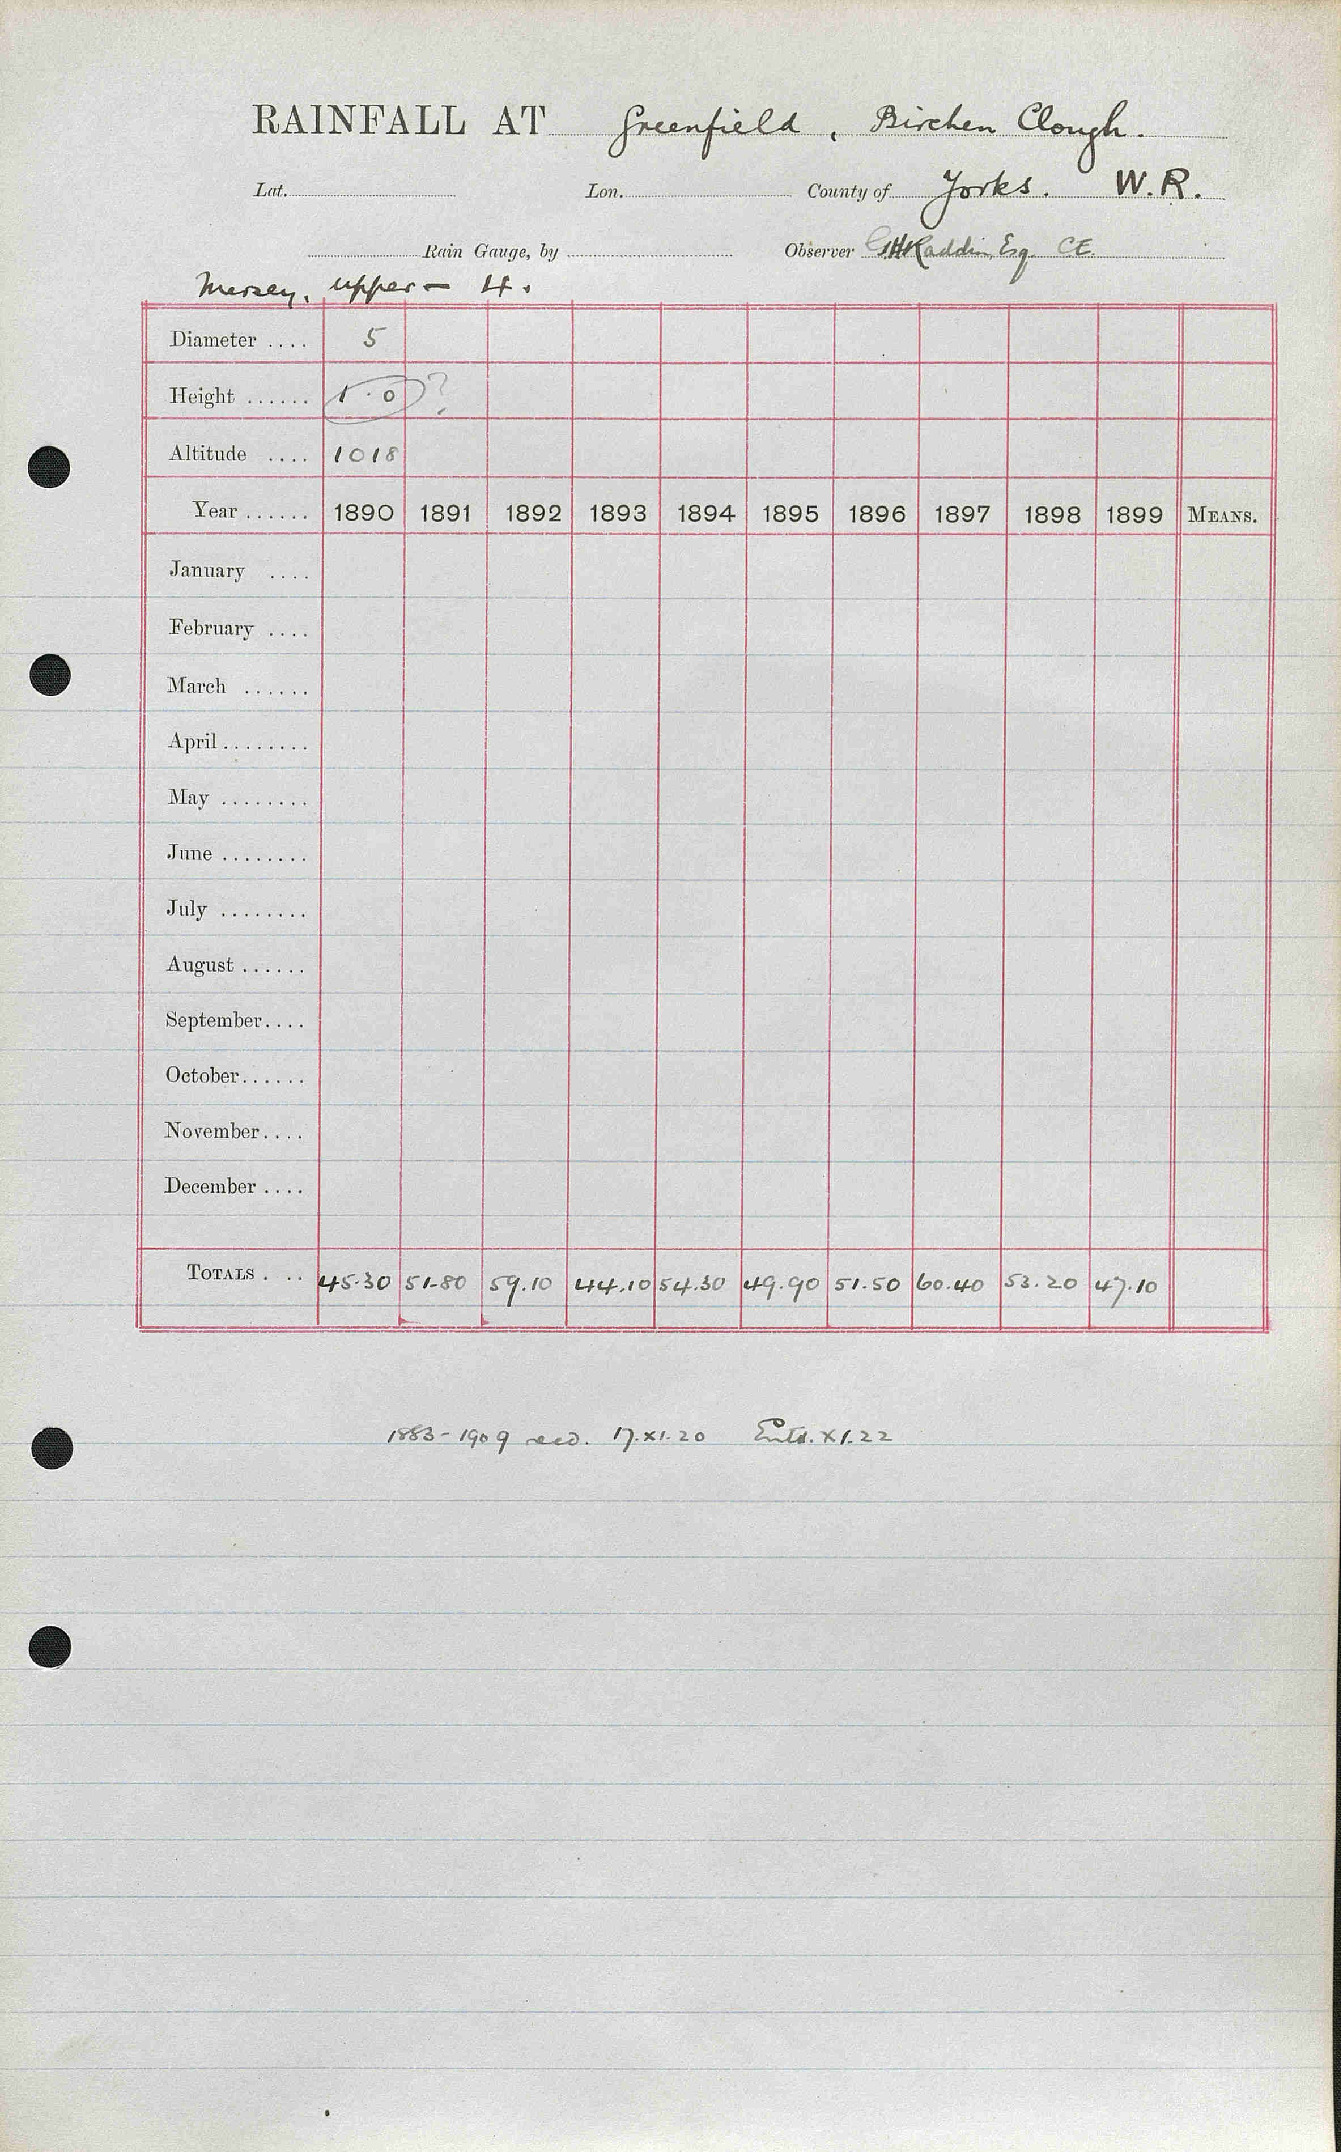 RAINFALL AT Greenfield, Birchen Clough.
Lat. Lon. County of Yorks. W.R.
Rain Gauge, by Observer Esq CE.
Mersey, upper - 4.
Diameter .... 5
Height ...... 1.0 ?
Altitude .... 1018
Year ...... 1890 1891 1892 1893 1894 1895 1896 1897 1898 1899 MEANS.
January ....
February ....
March ......
April ........
May ........
June ........
July ........
August ......
September....
October......
November....
December ....
TOTALS . .. 45.30 51.80 59.10 44.10 54.30 49.90 51.50 60.40 53.20 47.10
1883-1909 recd. 17.XI.20 Entd. XI.22